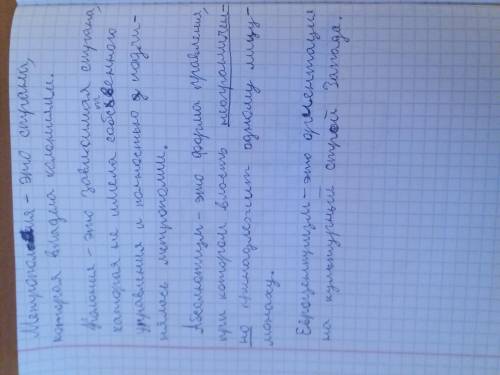 Метрополия - это страны,
которая владела колониями.
Колония - это зависимая страна,
каторая не имела собственного
управления и полностью подчи-
нялась метрополии.
Абсолютизм - это форма правления,
при котором власть неограничен-
но принадлежит одному лицу-
монаху.
Евроцентризм - это ориентация
на культурный строй Запада.